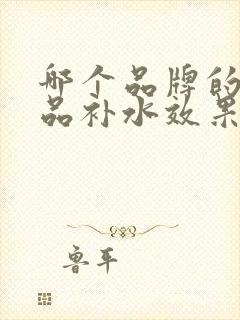 哪个品牌的
品补水效果
鲁平